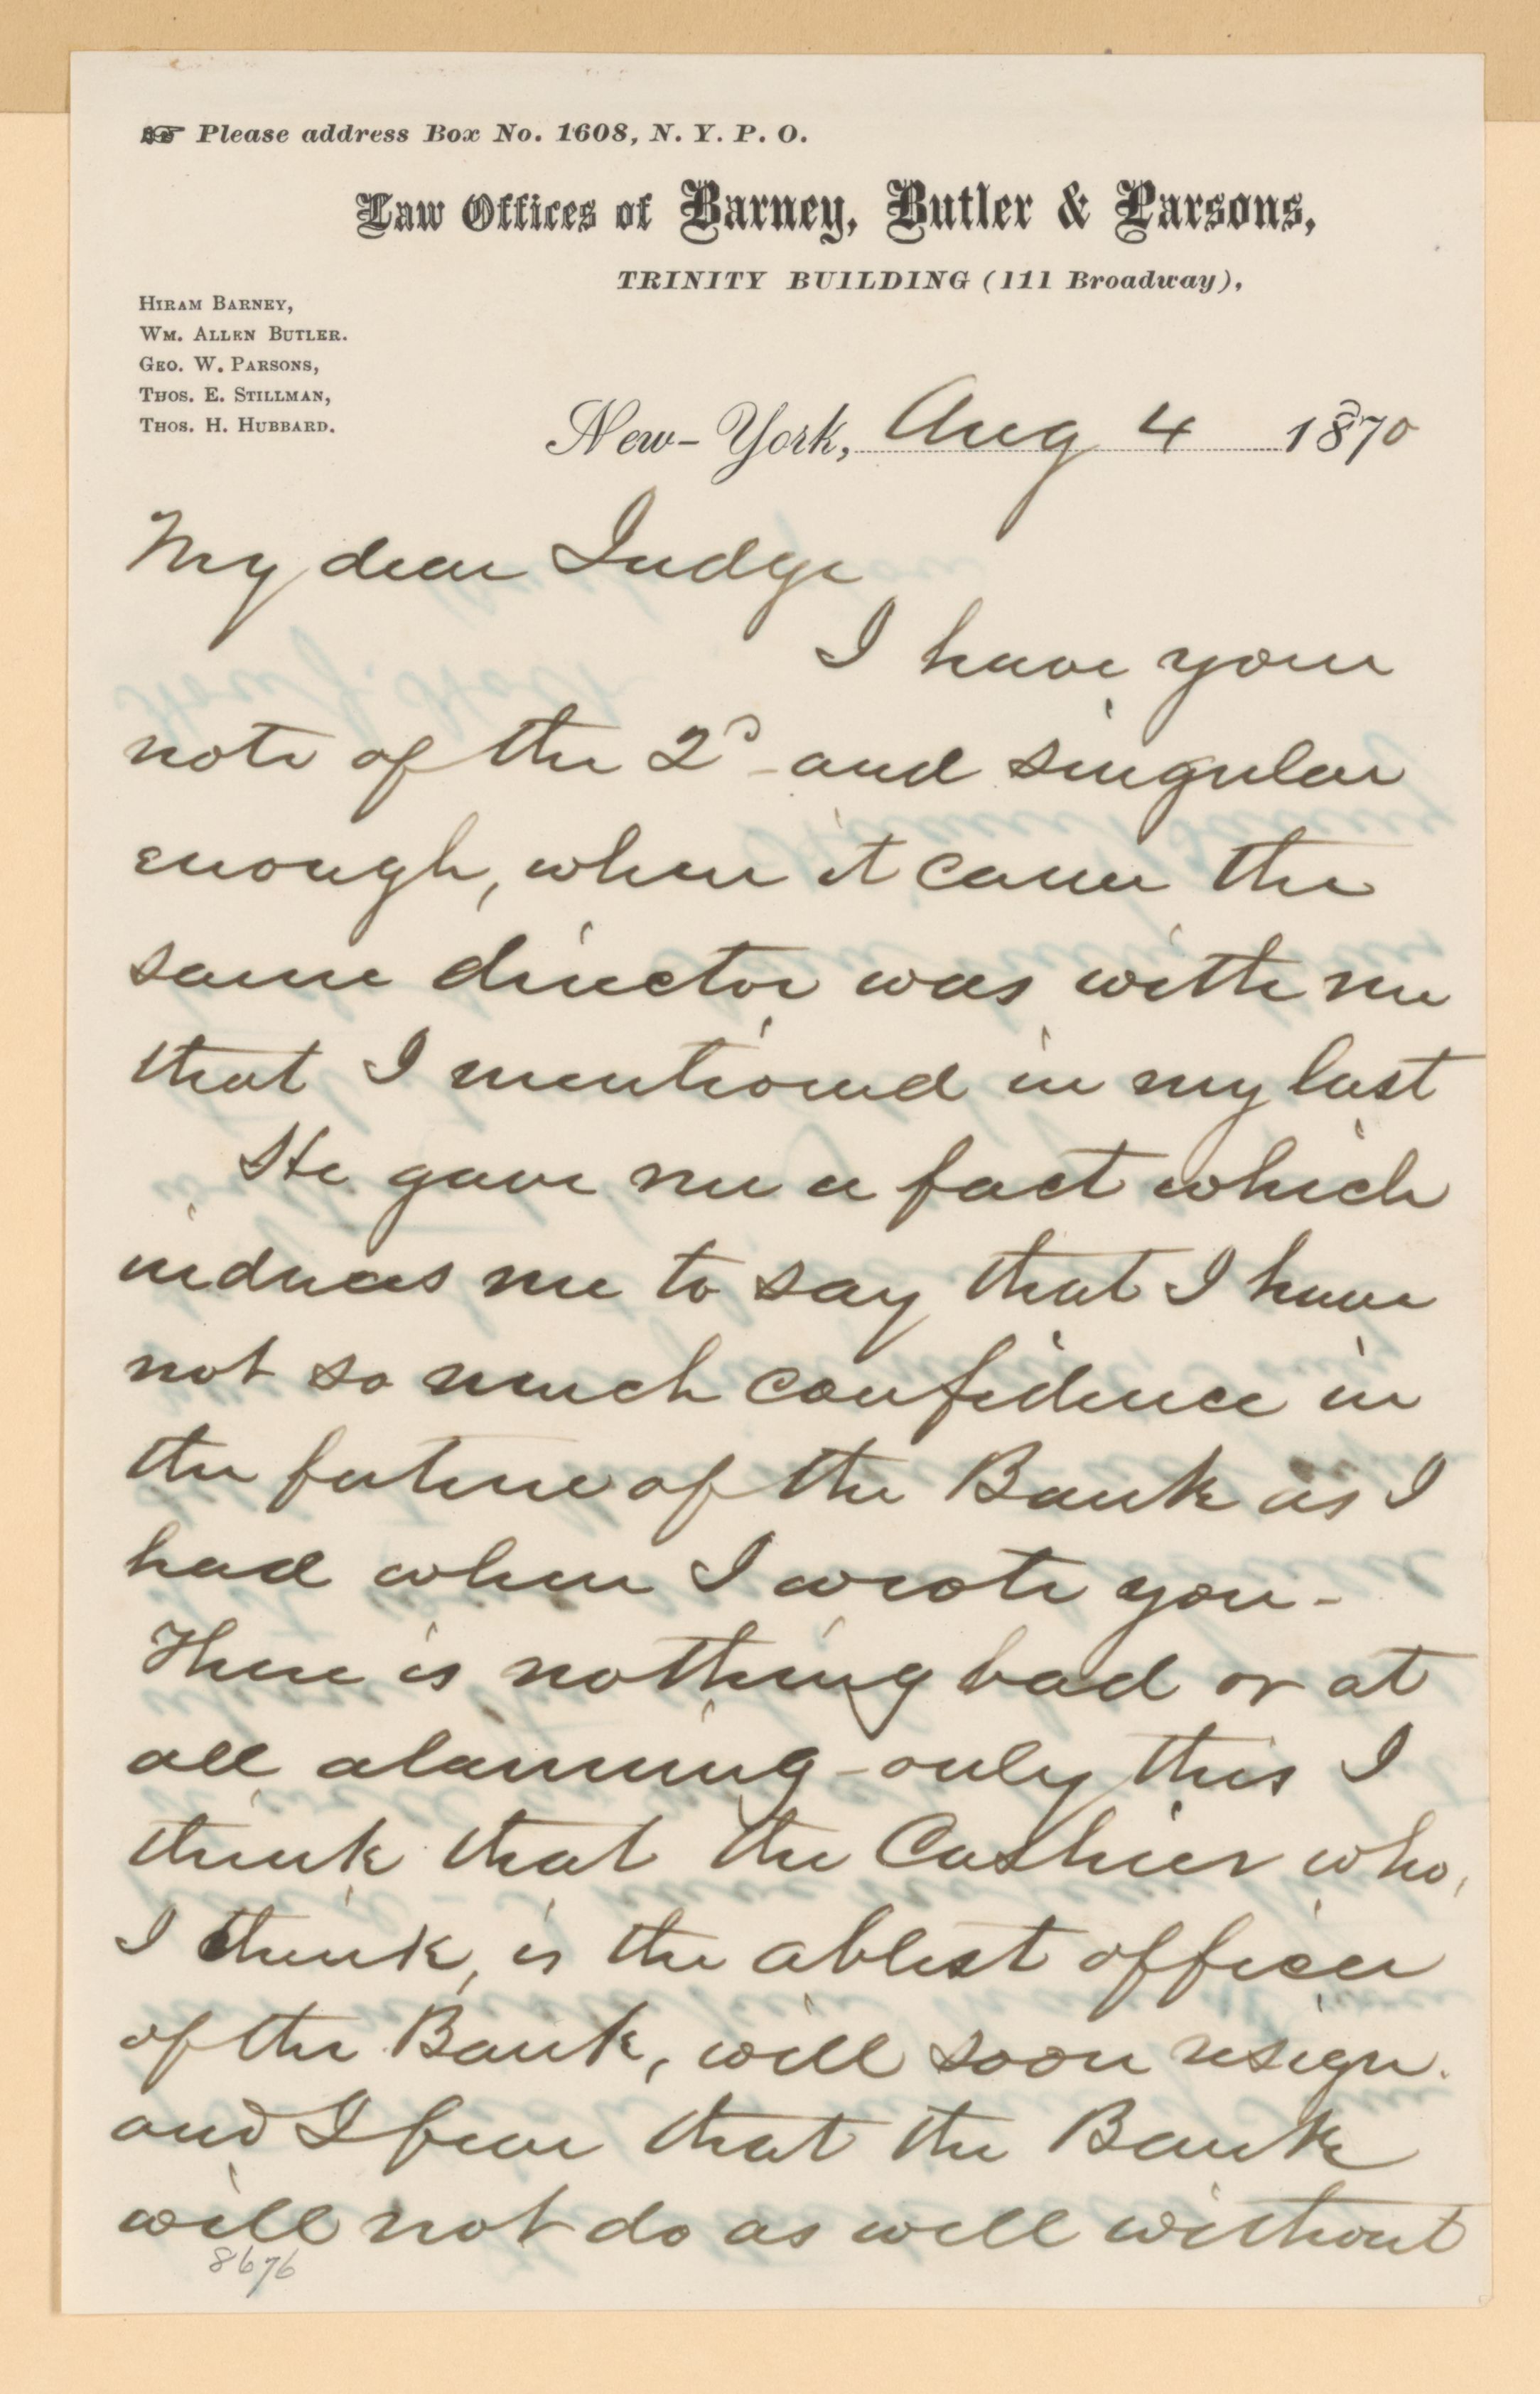 ☞ Please address Box No. 1608, N. Y. P. O.
Law Offices of Barney, Butler & Parsons,
TRINITY BUILDING (111 Broadway),
HIRAM BARNEY,
WM. ALLEN BUTLER.
GEO. W. PARSONS,
THOS. E. STILLMAN,
THOS. H. HUBBARD.
New-York, Aug 4 1870
My dear Judge
I have your
note of the 2d and singular
enough, when it came the
same director was with me
that I mentioned in my last
He gave me a fact which
induces me to say that I have
not so much confidence in
the future of the Bank as I
had when I wrote you-
There is nothing bad or at
all alarming - only this I
think that the Cashier who,
I think, is the ablest officer
of the Bank, will soon resign.
and I fear that the Bank
will not do as well without
8676